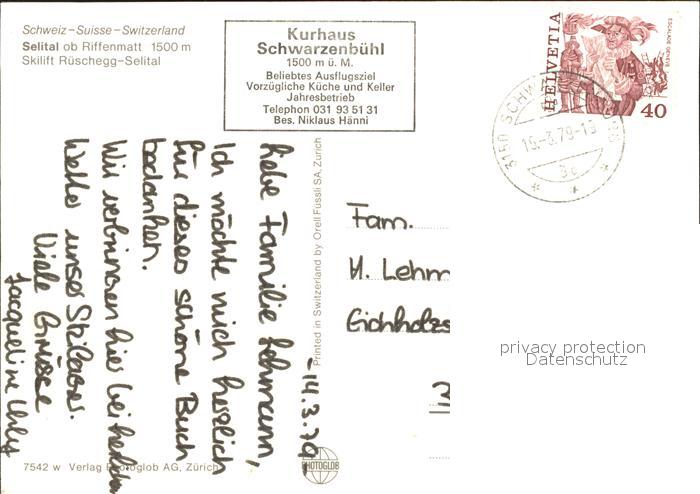 Schweiz-Suisse-Switzerland
Selital ob Riffenmatt 1500 m
Skilift Rüschegg-Selital
Kurhaus
Schwarzenbühl
1500 m ü. M.
Beliebtes Ausflugsziel
Vorzügliche Küche und Keller
Jahresbetrieb
Telephon 031 93 51 31
Bes. Niklaus Hänni
HELVETIA
ESCALADE GENEVE
40
3150 SCHW
16.-3.79-1
-14.3.79-
Liebe Familie Lehmann,
Ich möchte mich herzlich
für dieses schöne Buch
bedanken.
Wir verbringen hier bei
Wetter unser Skilager.
Viele Grüsse
Jacqueline
Printed in Switzerland by Orell Füssli SA, Zürich
Fam.
H. Lehm
Eichholzs
privacy protection
Datenschutz
7542 w Verlag Photoglob AG, Zürich
PHOTOGLOB